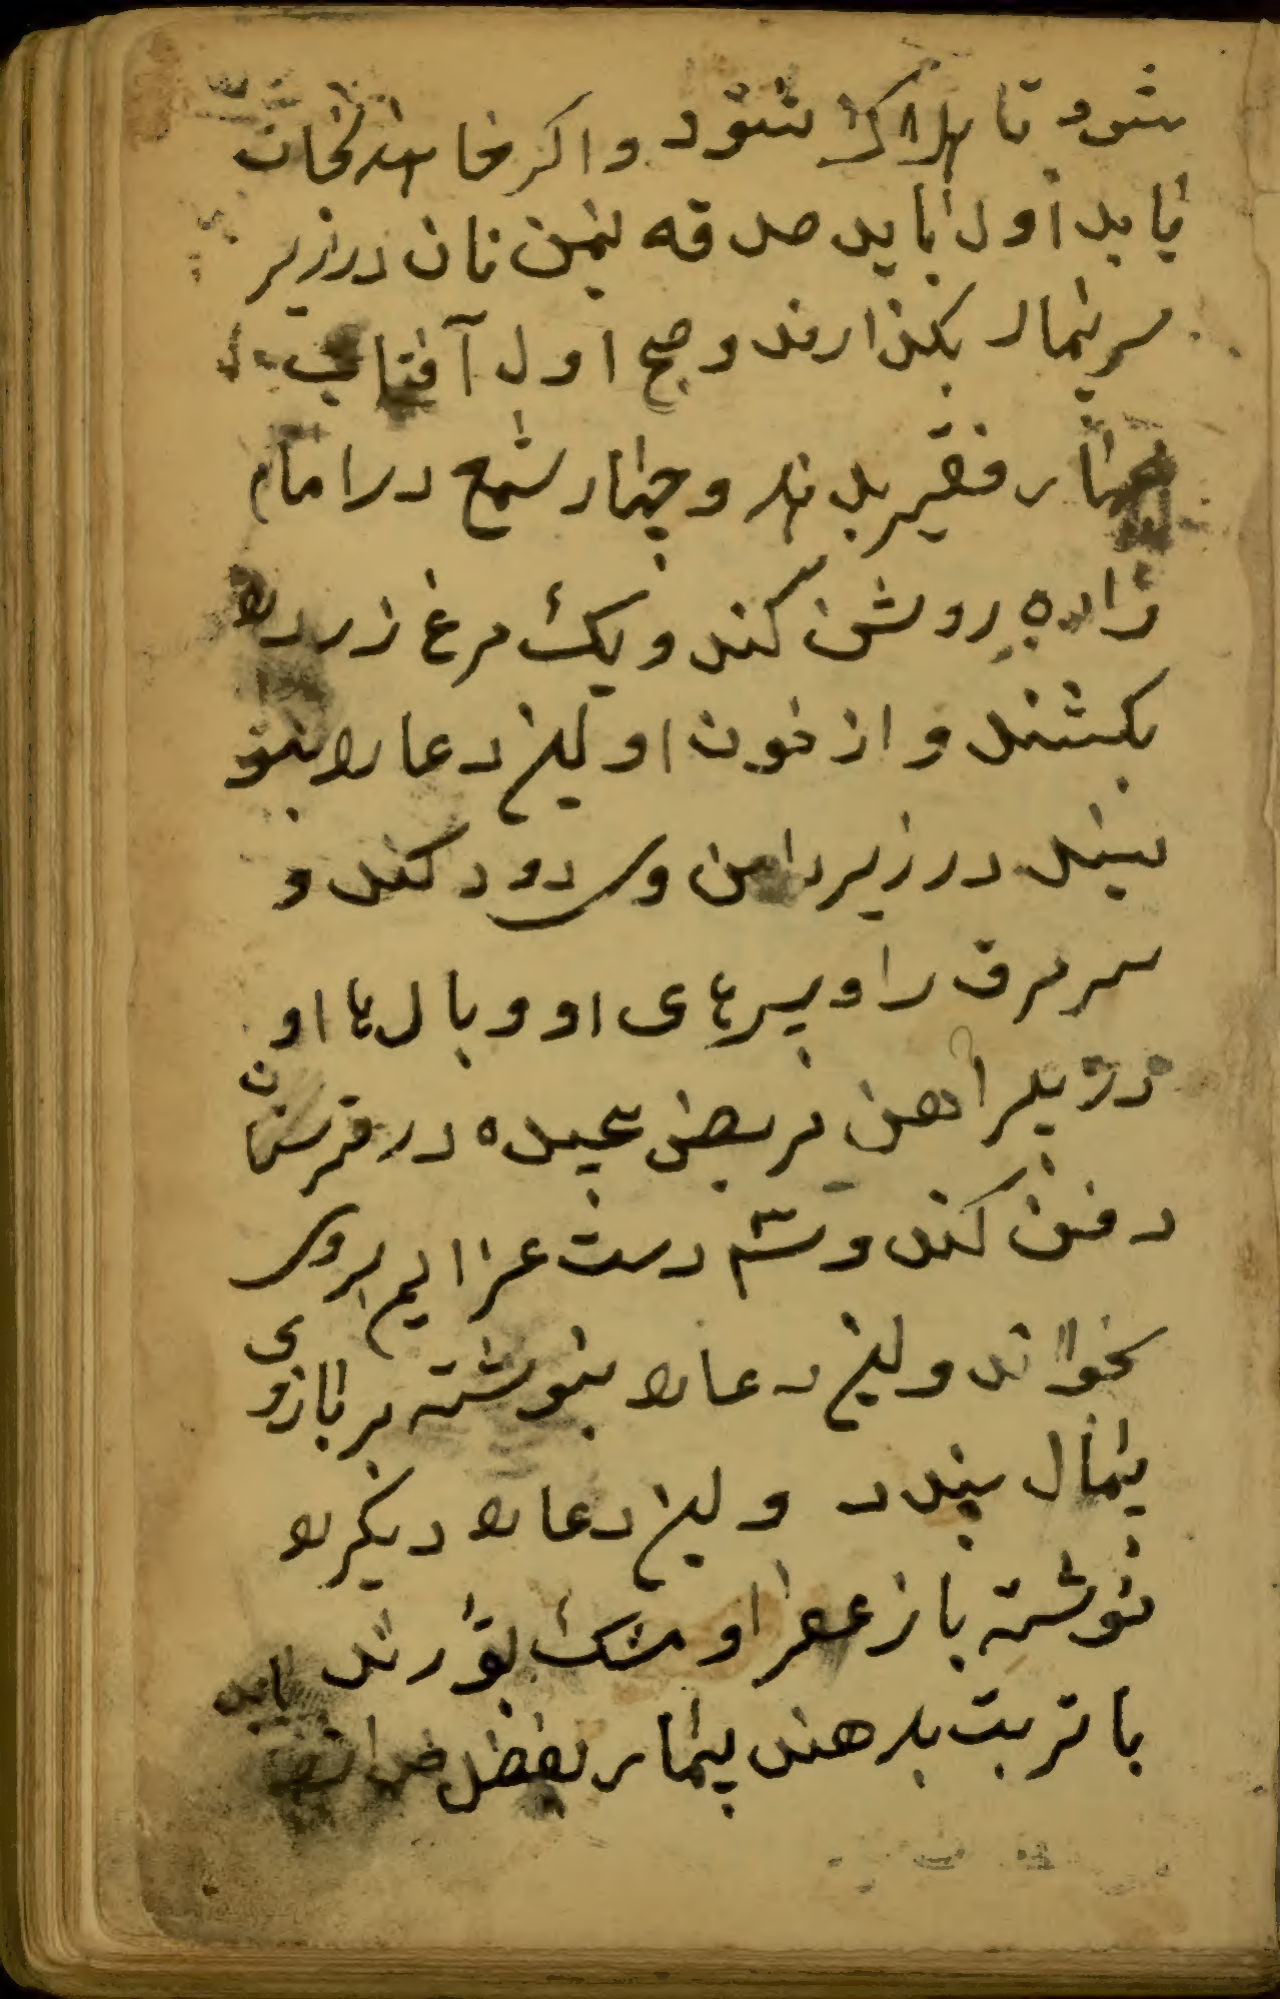 شود تا هلاک شود و اکر خاهند نجات
یابد اول باید صدقه نیمن نان در زیر
سر بیمار بکذارند و صبح اول آفتاب
چهار فقیر بدهند و چهار شمع در امام
زاده روشن کند و یک مرغ زرد را
بکشند و از خون او این دعا را بنو
یسند در زیر دامن وی دود کند و
سر مرق را و پرهای او و بال ها او
در پیراهن مریض پیچیده در قبرستان
دفن کند و شش دست عزایم بروی
بخواند و این دعا را بنوشته بر بازوی
بیمار بندد و این دعا را دیکر را
نوشته با زعفرا و مشک بوٌرند
با تربت بدهند بیمار بفضل خدا شفا یابد